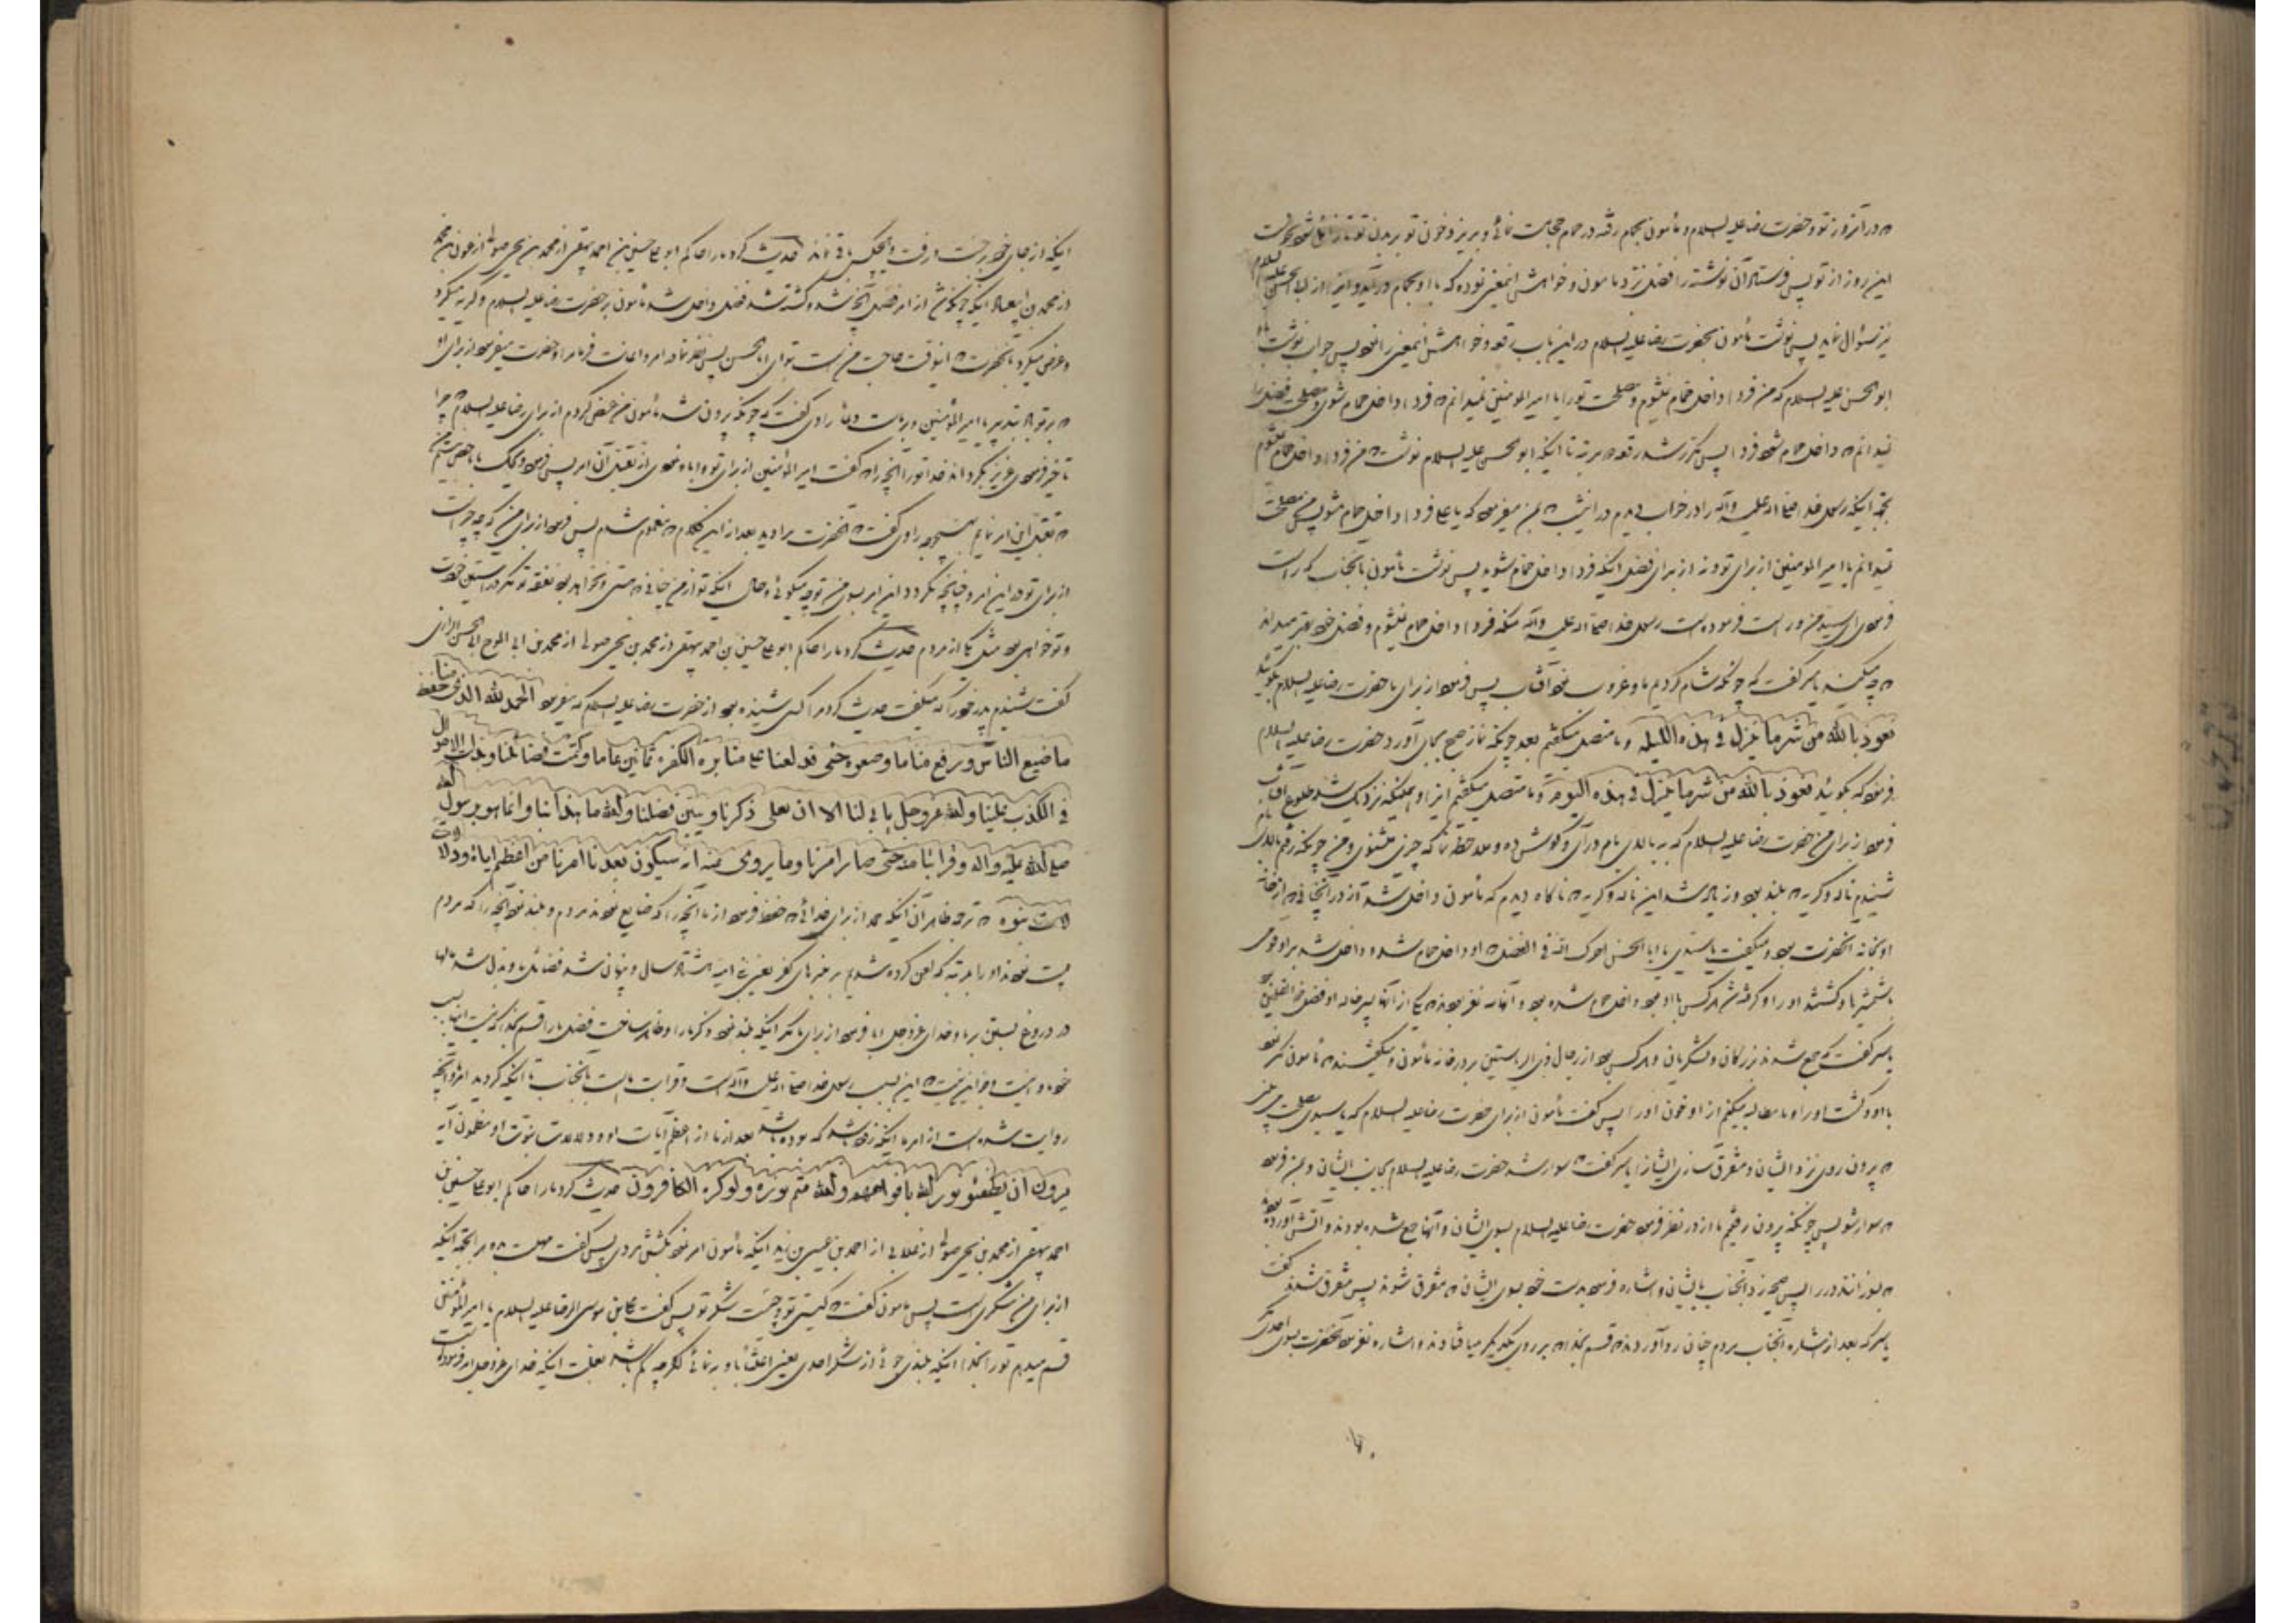 که در آنروز تو و حضرت رضا علیه السلام و مأمون بحمام رفته در حمام حجامت نمائی و بریزد خون تو بر بدن تو تا زایل شود نحوست
این روز از تو پس فرستاد آن نوشته را فضل نزد مامون و خواهش اینمعنی نموده که با او بحمام در آید و اینرا از ابی الحسن علیه السلام
نیز سؤال نماید پس نوشت مأمون بحضرت رضا علیه السلام در این باب رقعه و خواهش اینمعنی را نمود پس جواب نوشت باو
ابو الحسن علیه السلام که من فردا داخل حمام نمیشوم و مصلحت تو را یا امیر المومنین نمیدانم که فردا داخل حمام شوی و مصلحت فضل را
نمیدانم که داخل حمام شود فردا پس مکرر شد رقعه دو مرتبه تا اینکه ابو الحسن علیه السلام نوشت که من فردا داخل حمام نمیشوم
بجهة اینکه رسول خدا صلی الله علیه وآله را در خواب دیدم در این شب که بمن میفرمود که یا علی فردا داخل حمام مشو پس من مصلحت
نمیدانم یا امیر المومنین از برای تو و نه از برای فضل اینکه فردا داخل حمام شوید پس نوشت مأمون بآنجناب که راست
فرمودی ای سید من و راست فرموده است رسول خدا صلی الله علیه وآله منکه فردا داخل حمام نمیشوم و فضل خود بهتر میداند
که چه میکند یاسر گفت که چونکه شام کردیم ما و غروب نمود آفتاب پس فرمود از برای ما حضرت رضا علیه السلام بگوئید
نعوذ بالله من شر ما ینزل فی هذه اللیله و ما متصل میگفتیم بعد چونکه نماز صبح بجای آورد حضرت رضا علیه السلام
فرمود که بگوئید نعوذ بالله من شر ما ینزل فی هذه الیوم و ما متصل میگفتیم اینرا و همینکه نزدیک شد طلوع آفتاب
فرمود از برای من حضرت رضا علیه السلام که به بالای بام در آی و گوش ده و ملاحظه نما که چیزی میشنوی و من چونکه رفتم بالای بام
شنیدم ناله و گریه که بلند بود و زیاد شد این ناله و گریه که ناگاه دیدم که مأمون داخل شد از در آنخانه که از خانه
او بخانه آنحضرت بود و میگفت یا سیدی یا ابا الحسن اجرک الله فی الفضل که او داخل حمام شد و داخل شد بر او قومی
با شمشیرها و کشتند او را و گرفته شد هر کس با او بود و داخل حمام شده بود و آنها سه نفر بودند که یکی از آنها پسر خاله او فضل ذو القلمین بود
یاسر گفت که جمع شدند بزرگان و لشکریان و هر کس بود از رجال ذی الریاستین بر در خانه مأمون و میگفتند که مأمون مکر نمود
با او و کشت او را و ما مطالبه میکنیم از او خون او را پس گفت مأمون از برای حضرت رضا علیه السلام که یا سیدی مصلحت می بینی
که بیرون روی نزد ایشان و متفرق سازی ایشانرا یاسر گفت که سوار شد حضرت رضا علیه السلام بجانب ایشان و بمن فرمود
که سوار شو پس چونکه بیرون رفتیم ما از در نظر فرمود حضرت رضا علیه السلام بسوی ایشان و آنها جمع شده بودند و آتش آورده بودند
که بسوزانند در را پس صیحه زد آنجناب بایشان و اشاره فرمود بدست خود بسوی ایشان که متفرق شوند پس متفرق شدند گفت
یاسر که بعد از اشاره آنجناب مردم چنان رو آوردند که قسم بخدا که بر روی یکدیگر میافتادند و اشاره نفرمود آنحضرت بسوی احدی مگر
اینکه از جای خود برجست و رفت و هیچکس باقی نماند حدیث کرد ما را حاکم ابو علی حسین بن احمد بیهقی از محمد بن یحیی صولی از عون بن محمد
از محمد بن ابی عباد اینکه چونکه شد از امر فضل آنچه شد و کشته شد فضل داخل شد مأمون بر حضرت رضا علیه السلام و گریه میکرد
و عرض میکرد بآنحضرت که اینوقت حاجت من است بتو ای ابا الحسن پس نظر نما در امر و اعانت فرما مرا و حضرت میفرمود از برای او
که بر تو باد تدبیر یا امیر المؤمنین و بر ماست دعا راوی گفت که چونکه بیرون شد مأمون من عرض کردم از برای رضا علیه السلام که چرا
تأخیر فرمودی عزیز بگرداند خدا تو را آنچه را که گفت امیر المؤمنین از برای تو و ابا نمودی از تقبل آن امر پس فرمود ویحک یا ابا حسن نیستم من
از برای تو در این امر و چنانچه بگردد این امر بسوی من تو چه میگوئی و حال اینکه تو از من چنانی که هستی و نخواهد بود نفقه تو مگر در آستین خودت
و تو خواهی بود مثل یکی از مردم حدیث کرد ما را حاکم ابو علی حسین بن احمد بیهقی از محمد بن یحیی صولی از محمد بن ابی الموج ابی الحسن الرازی
گفت شنیدم پدر خود را که میگفت حدیث کرد مرا کسی شنیده بود از حضرت رضا علیه السلام که میفرمود الحمد لله الذی حفظ منا
ما ضیع الناس و رفع منا ما وضعوه حتی قد لعنا علی منابره الکفره ثمانین عاما و کتمت فضائلنا و بذلت الاموال
فی الکذب علینا والله عز وجل یابی لنا الا ان یعلی ذکرنا و یبین فضلنا والله ما هذا بنا وانما هو برسول الله
صلی الله علیه واله وقرابتنا منه حتی صار امرنا وما یروی عنه انه سیکون بعدنا امرنا من اعظم ایاته ودلالات
نبوته که ترجمه ظاهر آن اینکه حمد از برای خدائی که حفظ فرمود از ما آنچه را که ضایع نمودند مردم و بلند نمود آنچه را که مردم
پست نمودند او را بمرتبه که لعن کرده شدیم بر منبرهای کفر یعنی بنی امیه هشتاد سال و پنهان شد فضائل ما و بذل شد مالها
در دروغ بستن بر ما و خدای عز وجل ابا فرمود از برای ما مگر اینکه بلند نمود ذکر ما را و ظاهر ساخت فضل ما را قسم بخدا که نیست این بسبب
خود ما و نیست جز این نیست که این بسبب رسول خدا صلی الله علیه وآله است و قرابت ماست بآنجناب تا اینکه گردید امر ما و آنچه
روایت شده است از امر ما اینکه زود باشد که بوده باشد بعد از ما از اعظم آیات او و دلالات نبوت او
یریدون ان یطفئو نور الله بافواههم والله متم نوره ولو کره الکافرون حدیث کرد ما را حاکم ابو علی حسین بن
احمد بیهقی از محمد بن یحیی صولی از غلابی از احمد بن عیسی بن زید اینکه مأمون امر نمود بکشتن مردی پس گفت مهلت ده مرا بجهة اینکه
از برای من شکری است پس مامون گفت که کیستی تو و چیست شکر تو پس گفت علی بن موسی الرضا علیه السلام یا امیر المؤمنین
قسم میدهم تو را بخدا اینکه بلندی جوئی از شکر احدی یعنی اعتنا باو نمائی اگر چه کم باشد بعلت اینکه خدای عز وجل امر فرموده است